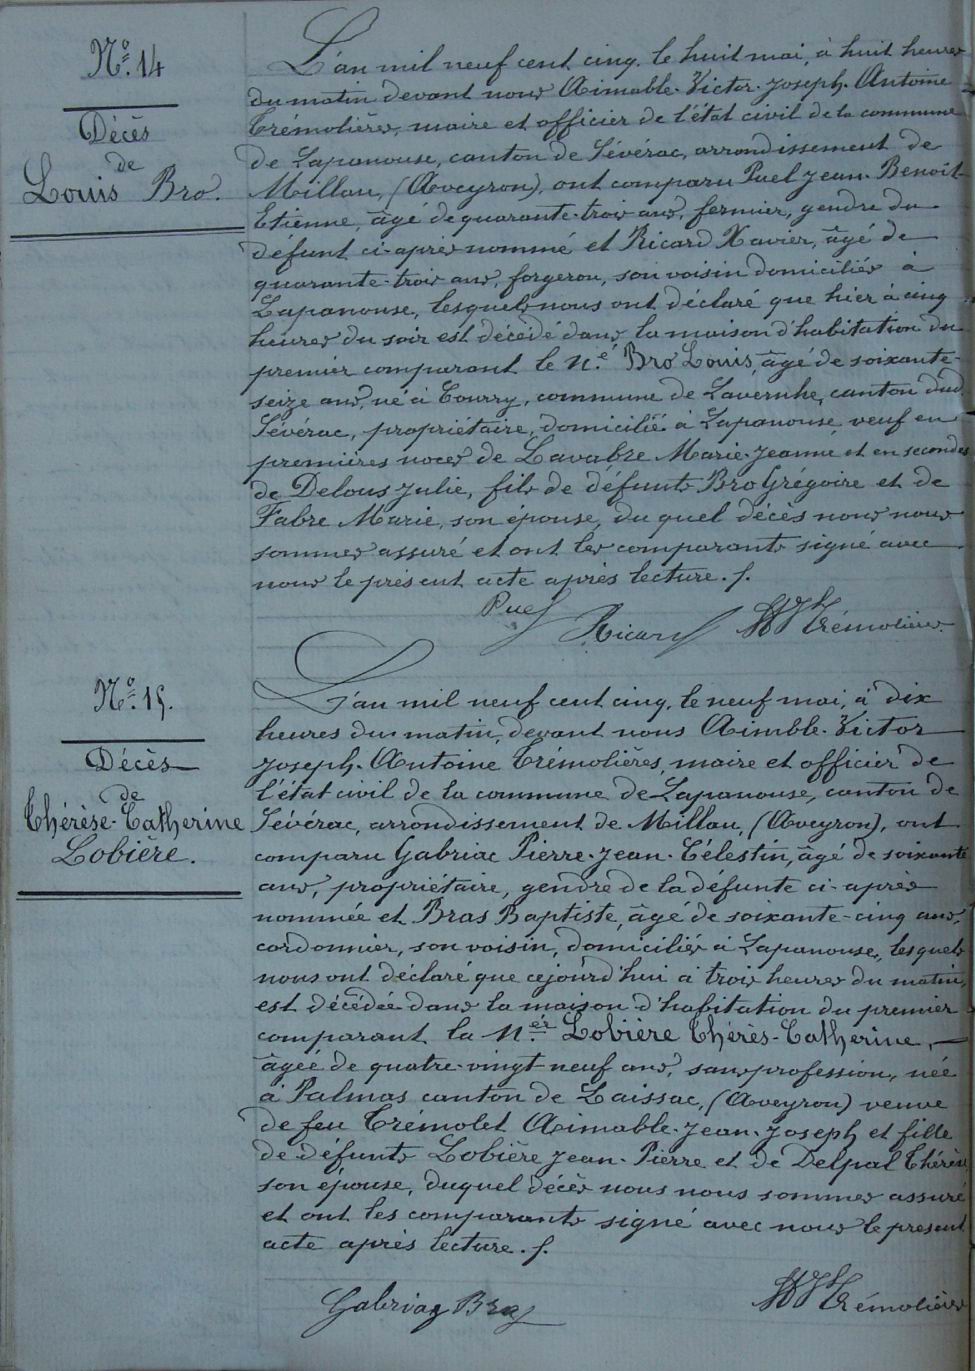 N° 14
Décès
de
Louis Bro.
L'an mil neuf cent cinq, le huit mai, à huit heures
du matin devant nous Aimable-Victor-Joseph-Antoine
Trémolières, maire et officier de l'état civil de la commune
de Lapanouse, canton de Sévérac, arrondissement de
Millau, (Aveyron), ont comparu Puel Jean-Benoit
Etienne, âgé de quarante-trois ans, fermier, gendre du
défunt ci-après nommé et Ricard Xavier, âgé de
quarante-trois ans, forgeron, son voisin domiciliés à
Lapanouse, lesquels nous ont déclaré que hier à cinq
heures du soir est décédé dans la maison d'habitation du
premier comparant le N.é Bro Louis, âgé de soixante-
seize ans, né à Tourry, commune de Lavernhe, canton dud.
Sévérac, propriétaire, domicilié à Lapanouse, veuf en
premières noces de Lavabre Marie-Jeanne et en secondes
de Delous Julie, fils de défunts Bro Grégoire et de
Fabre Marie, son épouse, du quel décès nous nous
sommes assuré et ont les comparants signé avec
nous le présent acte après lecture. /.
Puel
Ricard
AVJ Trémolières
N° 15.
Décès
de
Thérèse-Catherine
Lobière.
L'an mil neuf cent cinq, le neuf mai, à dix
heures du matin, devant nous Aimble-Victor
Joseph-Antoine Trémolières, maire et officier de
l'état civil de la commune de Lapanouse, canton de
Sévérac, arrondissement de Millau, (Aveyron), ont
comparu Gabriac Pierre-Jean-Célestin, âgé de soixante
ans, propriétaire, gendre de la défunte ci-après
nommée et Bras Baptiste, âgé de soixante-cinq ans,
cordonnier, son voisin, domiciliés à Lapanouse, lesquels
nous ont déclaré que cejourd'hui à trois heures du matin,
est décédée dans la maison d'habitation du premier
comparant la N.ée Lobière Thérès-Catherine,
âgée de quatre-vingt-neuf ans, sans profession, née
à Palmas canton de Laissac, (Aveyron) veuve
de feu Trémolet Aimable-Jean-Joseph et fille
de défunts Lobière Jean-Pierre et de Delpal Thérèse
son épouse, duquel décès nous nous sommes assuré
et ont les comparants signé avec nous le présent
acte après lecture. /.
Gabriag Bras
AVJ Trémolières